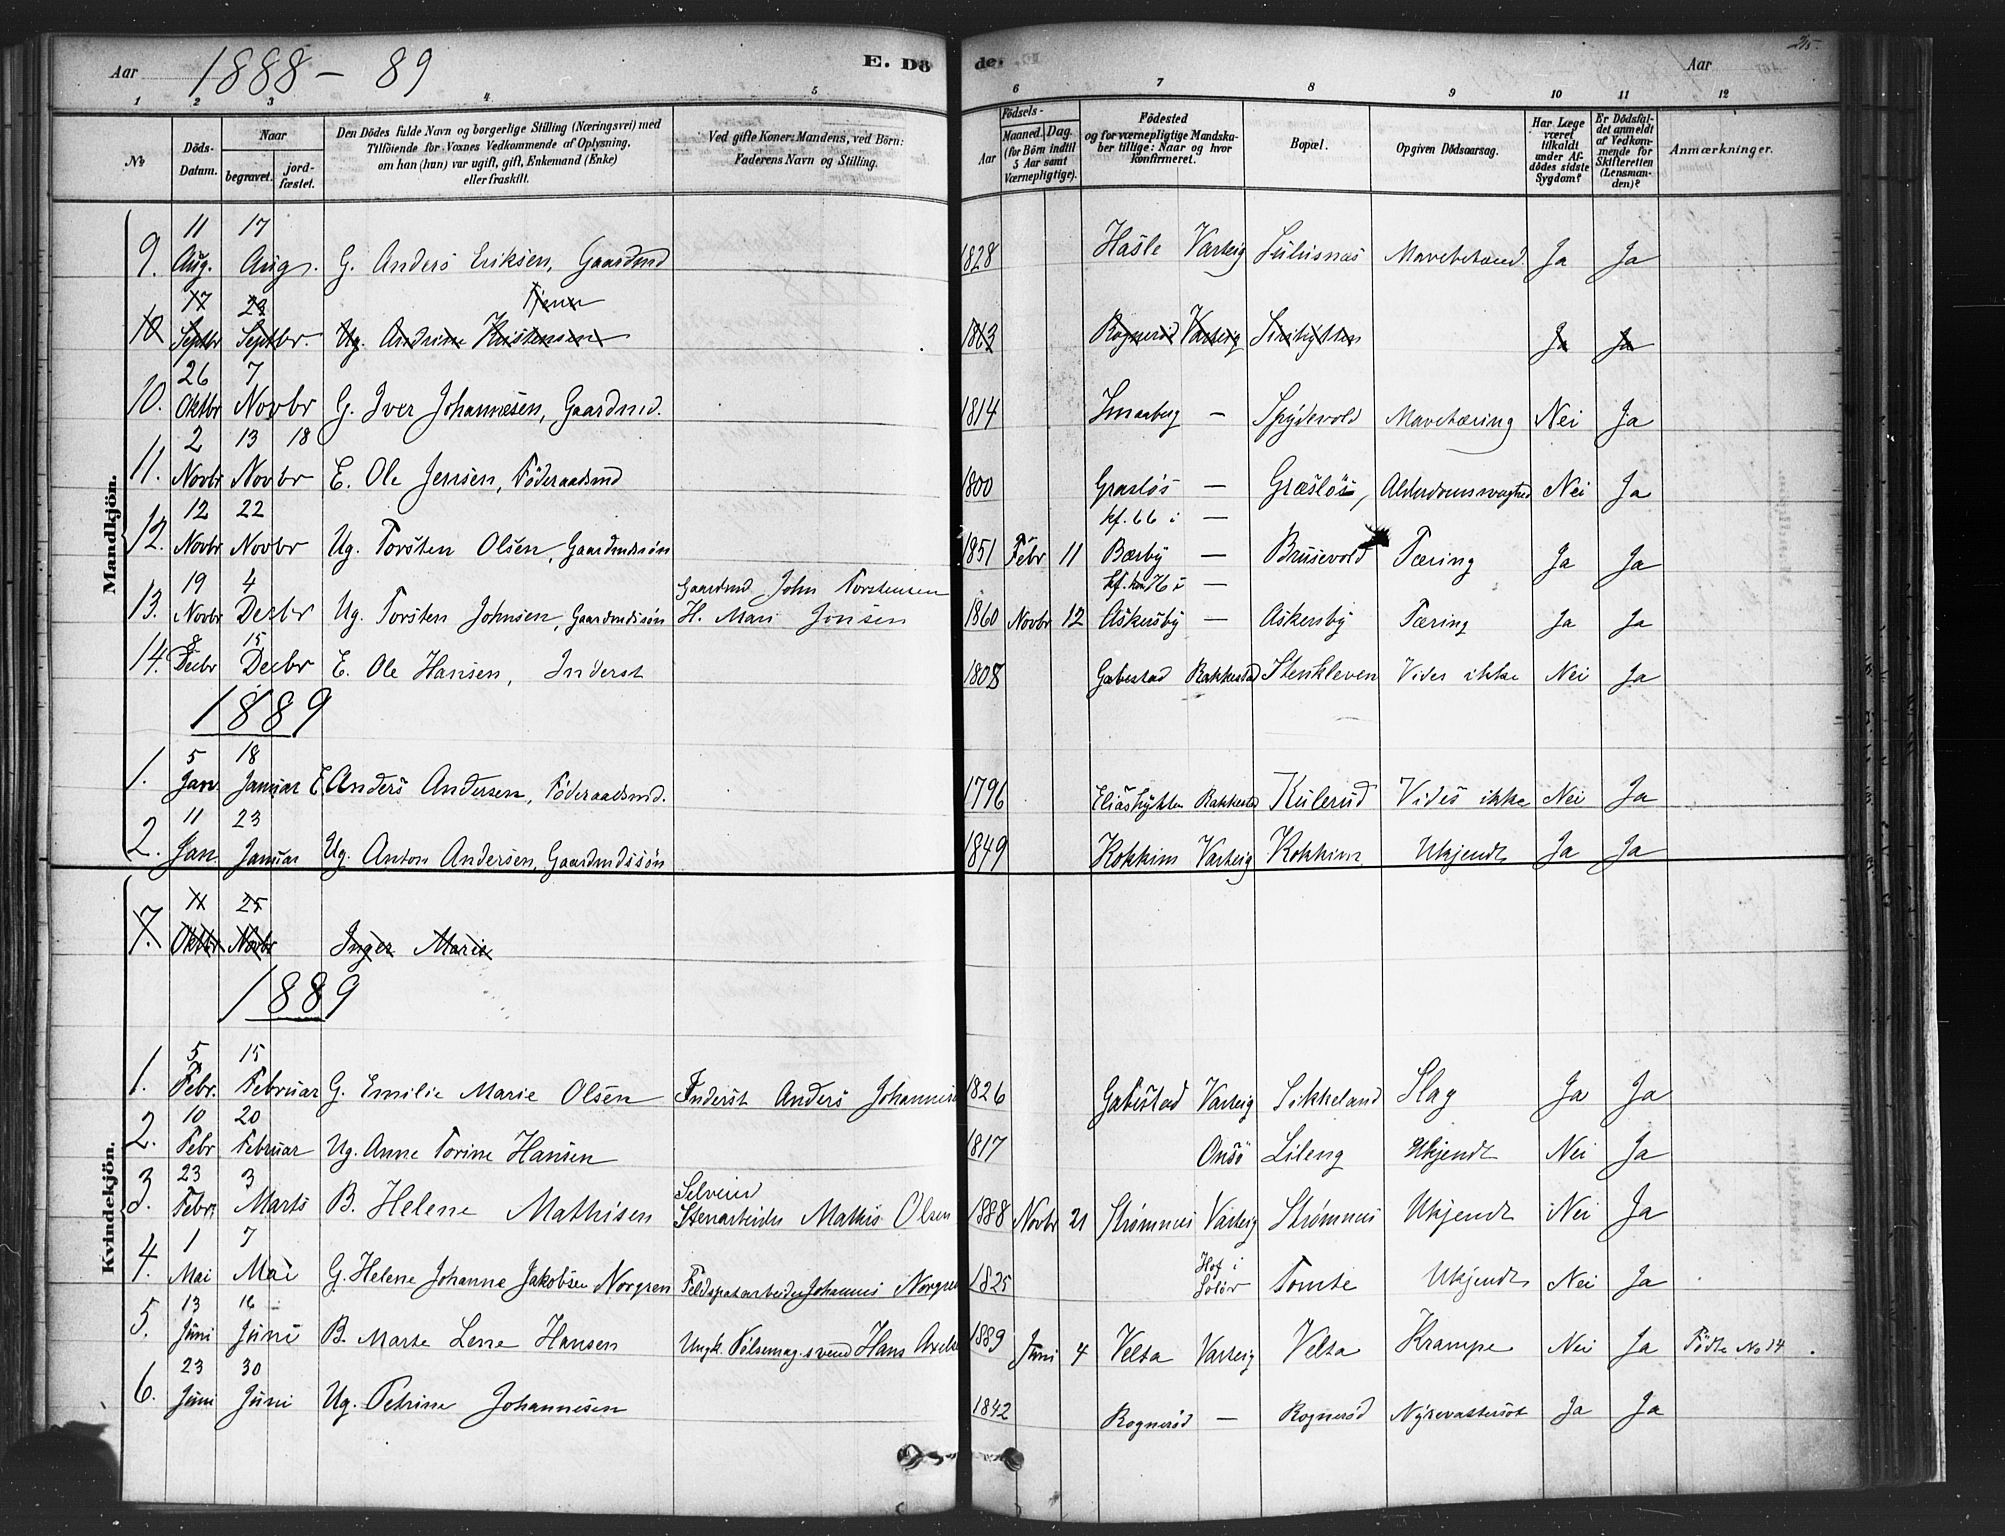 Aar 1888 – 89 E. Dö de. Aar 215.
1 2 3 4 5 6 7 8 9 10 11 12
No Döds-Datum. Naar begravet. jord-fæstet. Den Dödes fulde Navn og borgerlige Stilling (Næringsvei) med Tilföiende for Voxnes Vedkommende af Oplysning, om han (hun) var ugift, gift, Enkemand (Enke) eller fraskilt. Ved gifte Koner: Mandens, ved Börn: Faderens Navn og Stilling. Aar Födsels- Maaned. Dag. (for Börn indtil 5 Aar samt Værnepligtige). Födested og for værnepligtige Mandskaber tillige: Naar og hvor Konfirmeret. Bopæl. Opgiven Dödsaarsag. Har Læge været tilkaldt under Afdödes sidste Sygdom? Er Dödsfaldet anmeldt af Vedkommende for Skifteretten (Lensmanden)? Anmærkninger.
Mandkjön.
11 17
9. Aug. Aug. G. Anders Eriksen, Gaardmd 1828 Hasle Varteig Julusnæs Mavebetænd. Ja Ja
17 23 Tjener
10 Septbr Septbr. Ug. Andrine Kristensen 1863 Rognerød Varteig Ja Ja
26 7
10. Oktbr Novbr G. Iver Johannesen, Gaardmd. 1814 — Spydevold Mavetæring Nei Ja
2 13 18
11. Novbr Novbr E. Ole Jensen, Föderaadsmd 1800 Grasløs — Græsløs, Alderdomssvaghed Nei Ja
12 22 kf. 66 i —
12. Novbr Novbr Ug. Torsten Olsen, Gaardmdssøn 1851 Febr 11 Bærby — Brusevold Tæring Ja Ja
19 4 Gaardmd John Torstensen kf. 76 i —
13. Novbr Decbr Ug. Torsten Johnsen, Gaardmdssøn H. Mari Jonsen 1860 Novbr 12 Askersby — Askersby Tæring Ja Ja
8 15
14. Decbr Decbr E. Ole Hansen, Inderst 1808 Gabestad Rakkestad Stenkleven Vides ikke Nei Ja
1889
5 18
1. Jan. Januar E. Anders Andersen, Föderaadsmd. 1796 Eliashytten Rakkestad Kulerud Vides ikke Nei Ja
11 23
2. Jan Januar Ug. Anton Andersen, Gaardmdssøn 1849 Kokkim Varteig Kokkim Ukjendt Ja Ja
Kvindekjön.
11 25
7. Oktbr Novbr Inger Marie
1889
5 15
1. Febr. Februar G. Emilie Marie Olsen Inderst Anders Johannesen 1826 Gabestad Varteig Sikkeland Slag Ja Ja
10 20
2. Febr Februar Ug. Anne Torine Hansen 1817 Onsö Lileng Ukjendt Nei Ja
23 3 Selveied
3. Febr. Marts B. Helene Mathisen Stenarbeider Mathis Olsen 1888 Novbr 21 Strømnes Varteig Strømnes Ukjendt Nei Ja
1 7 Hof i
4. Mai Mai G. Helene Johanne Jakobsen Norgren Feldspatarbeider Johannes Norgren 1825 Solør Tomte Ukjendt Nei Ja
13 16
5. Juni Juni B. Marte Lene Hansen Ungk. Pølsemag.svend Hans Axelse 1889 Juni 4 Velta Varteig Velta Krampe Nei Ja Fødte No 14
23 30
6. Juni Juni Ug. Petrine Johannesen 1842 Rognerød — Rognerød Nyrevattersot Ja Ja